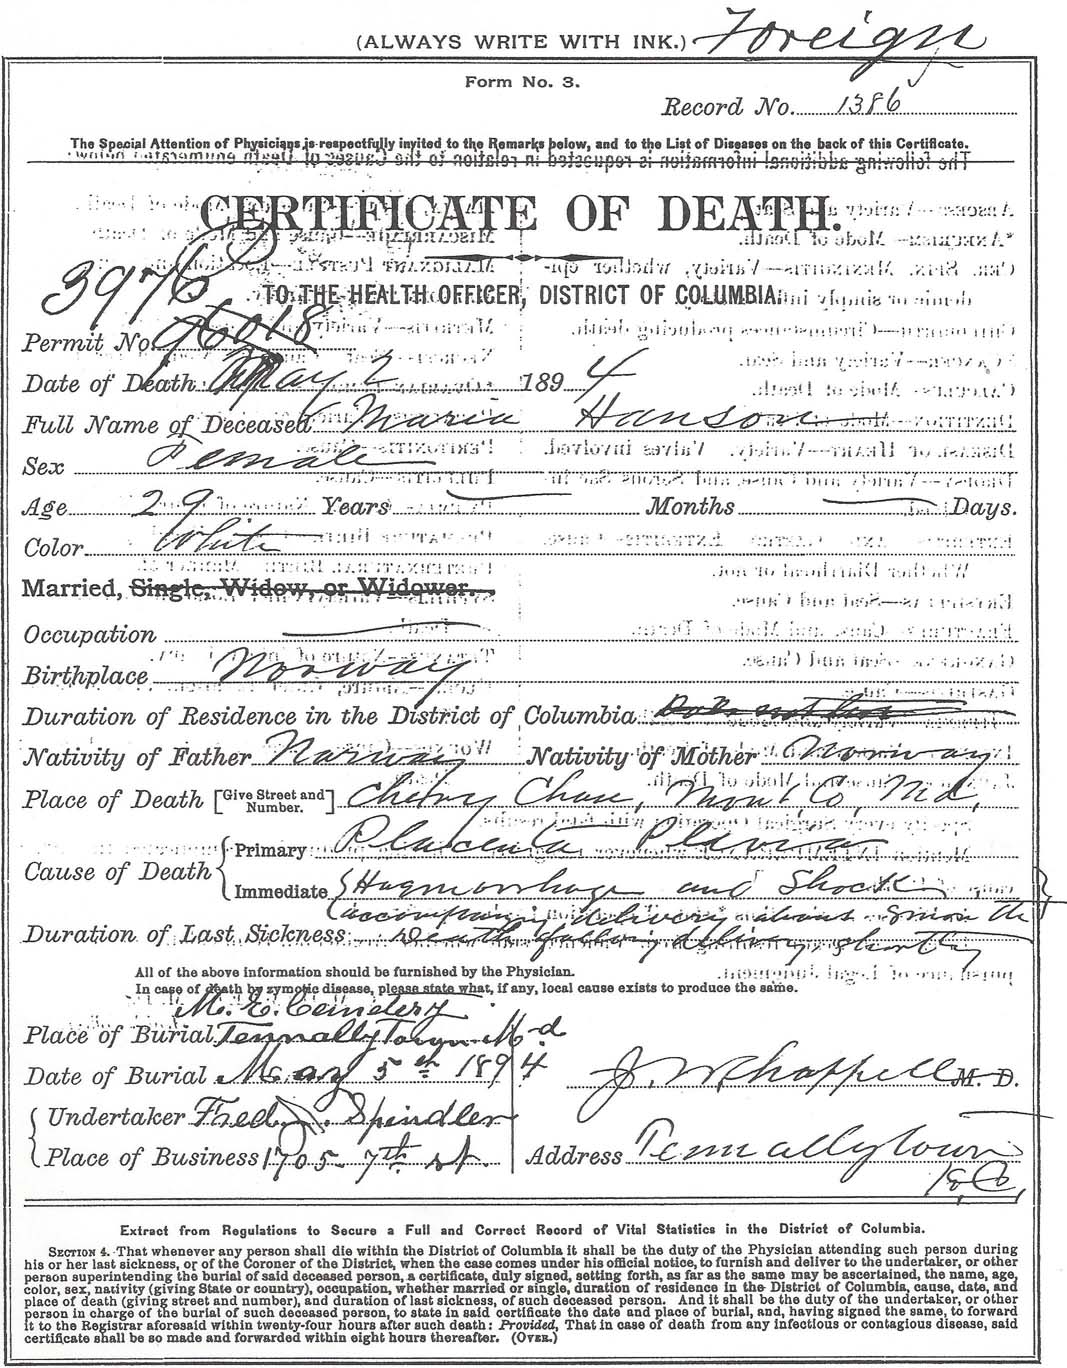 (ALWAYS WRITE WITH INK.) Foreign
Form No. 3.
Record No. 1386
The Special Attention of Physicians is respectfully invited to the Remarks below, and to the List of Diseases on the back of this Certificate.
CERTIFICATE OF DEATH.
3976
TO THE HEALTH OFFICER, DISTRICT OF COLUMBIA.
Permit No. 96018
Date of Death: May 2 1894
Full Name of Deceased Maria Hanson
Sex Female
Age 29 Years Months Days.
Color White
Married, Single, Widow, or Widower.
Occupation
Birthplace Norway
Duration of Residence in the District of Columbia
Nativity of Father Norway Nativity of Mother Norway
Place of Death [Give Street and Number.] Chevy Chase, Mont Co, Md,
Cause of Death Primary Placenta Plavia
Immediate Haemorrhage and Shock
accompanying delivery about
Duration of Last Sickness Death delivery shortly
All of the above information should be furnished by the Physician.
In case of death by zymotic disease, please state what, if any, local cause exists to produce the same.
M. E. Cemetery
Place of Burial Tennallytown Md
Date of Burial May 5th 1894 J. W. Chappell M. D.
Undertaker Fred. Spindler
Place of Business 1705 7th st. Address Tennallytown
D.C.
Extract from Regulations to Secure a Full and Correct Record of Vital Statistics in the District of Columbia.
SECTION 4. That whenever any person shall die within the District of Columbia it shall be the duty of the Physician attending such person during
his or her last sickness, or of the Coroner of the District, when the case comes under his official notice, to furnish and deliver to the undertaker, or other
person superintending the burial of said deceased person, a certificate, duly signed, setting forth, as far as the same may be ascertained, the name, age,
color, sex, nativity (giving State or country), occupation, whether married or single, duration of residence in the District of Columbia, cause, date, and
place of death (giving street and number), and duration of last sickness, of such deceased person. And it shall be the duty of the undertaker, or other
person in charge of the burial of such deceased person, to state in said certificate the date and place of burial, and, having signed the same, to forward
it to the Registrar aforesaid within twenty-four hours after such death: Provided, That in case of death from any infectious or contagious disease, said
certificate shall be so made and forwarded within eight hours thereafter. (OVER.)